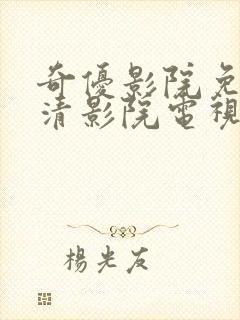 奇優影院免
清影院電視
楊光友